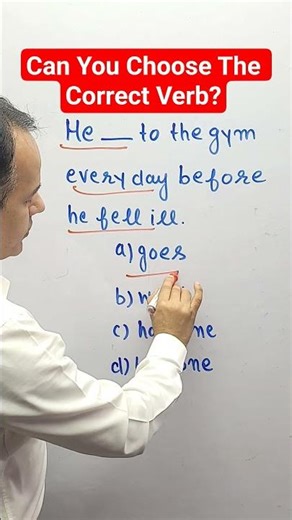 Can You Choose The
Correct Verb?
He __ to the gym
everyday before
he fell ill.
a) goes
b)
c)
d)